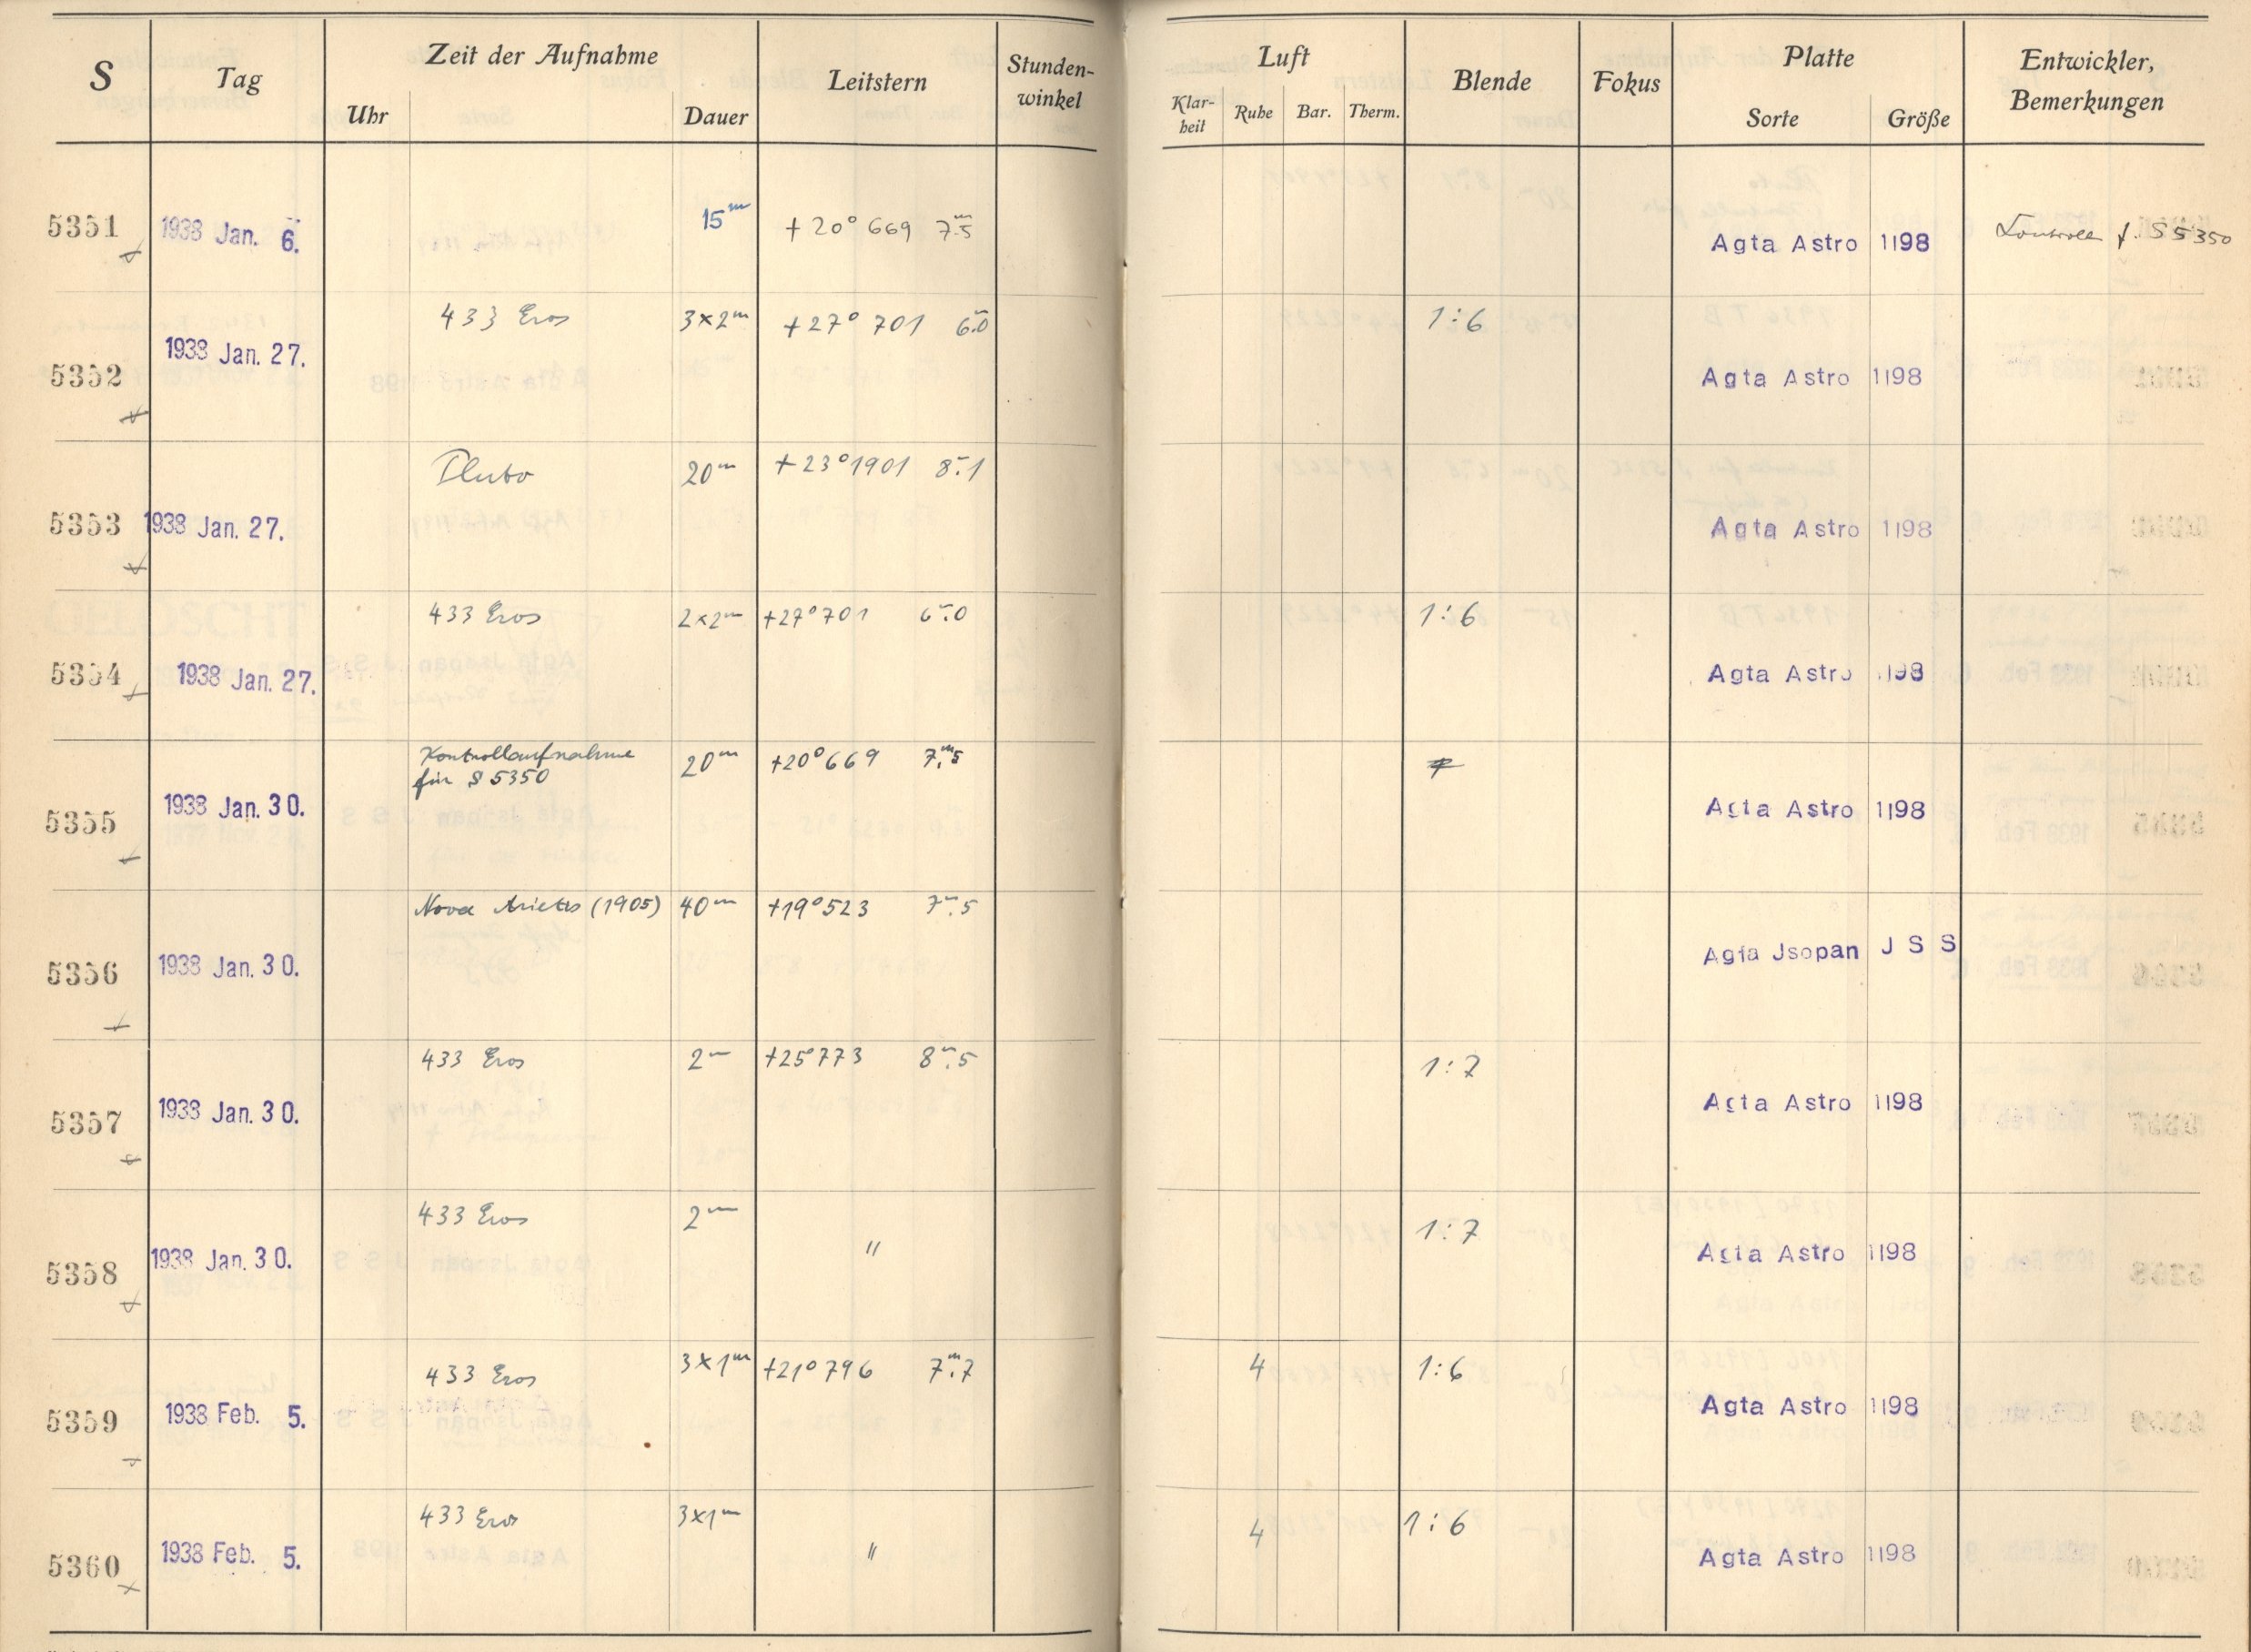 S Tag Zeit der Aufnahme Leitstern Stunden-
winkel
Uhr Dauer
Luft Blende Fokus Platte Entwickler,
Bemerkungen
Klar-
heit Ruhe Bar. Therm. Sorte Größe
5351 1938 Jan. 6. 15m +20° 669 7m.5 Agfa Astro 1198 Kontrolle f. S 5350
5352 1938 Jan. 27. 433 Eros 3x2m +27° 701 6m.0 1:6 Agfa Astro 1198
5353 1938 Jan. 27. Pluto 20m +23° 1901 8m.1 Agfa Astro 1198
5354 1938 Jan. 27. 433 Eros 2x2m +27° 701 6m.0 1:6 Agfa Astro 1198
5355 1938 Jan. 30. Kontrollaufnahme
für S 5350 20m +20° 669 7m.5 Agfa Astro 1198
5356 1938 Jan. 30. Nova Arietis (1905) 40m +19° 523 7m.5 Agfa Jsopan J S S
5357 1938 Jan. 30. 433 Eros 2m +25° 773 8m.5 1:7 Agfa Astro 1198
5358 1938 Jan. 30. 433 Eros 2m " 1:7 Agfa Astro 1198
5359 1938 Feb. 5. 433 Eros 3x1m +21° 796 7m.7 4 1:6 Agfa Astro 1198
5360 1938 Feb. 5. 433 Eros 3x1m " 4 1:6 Agfa Astro 1198